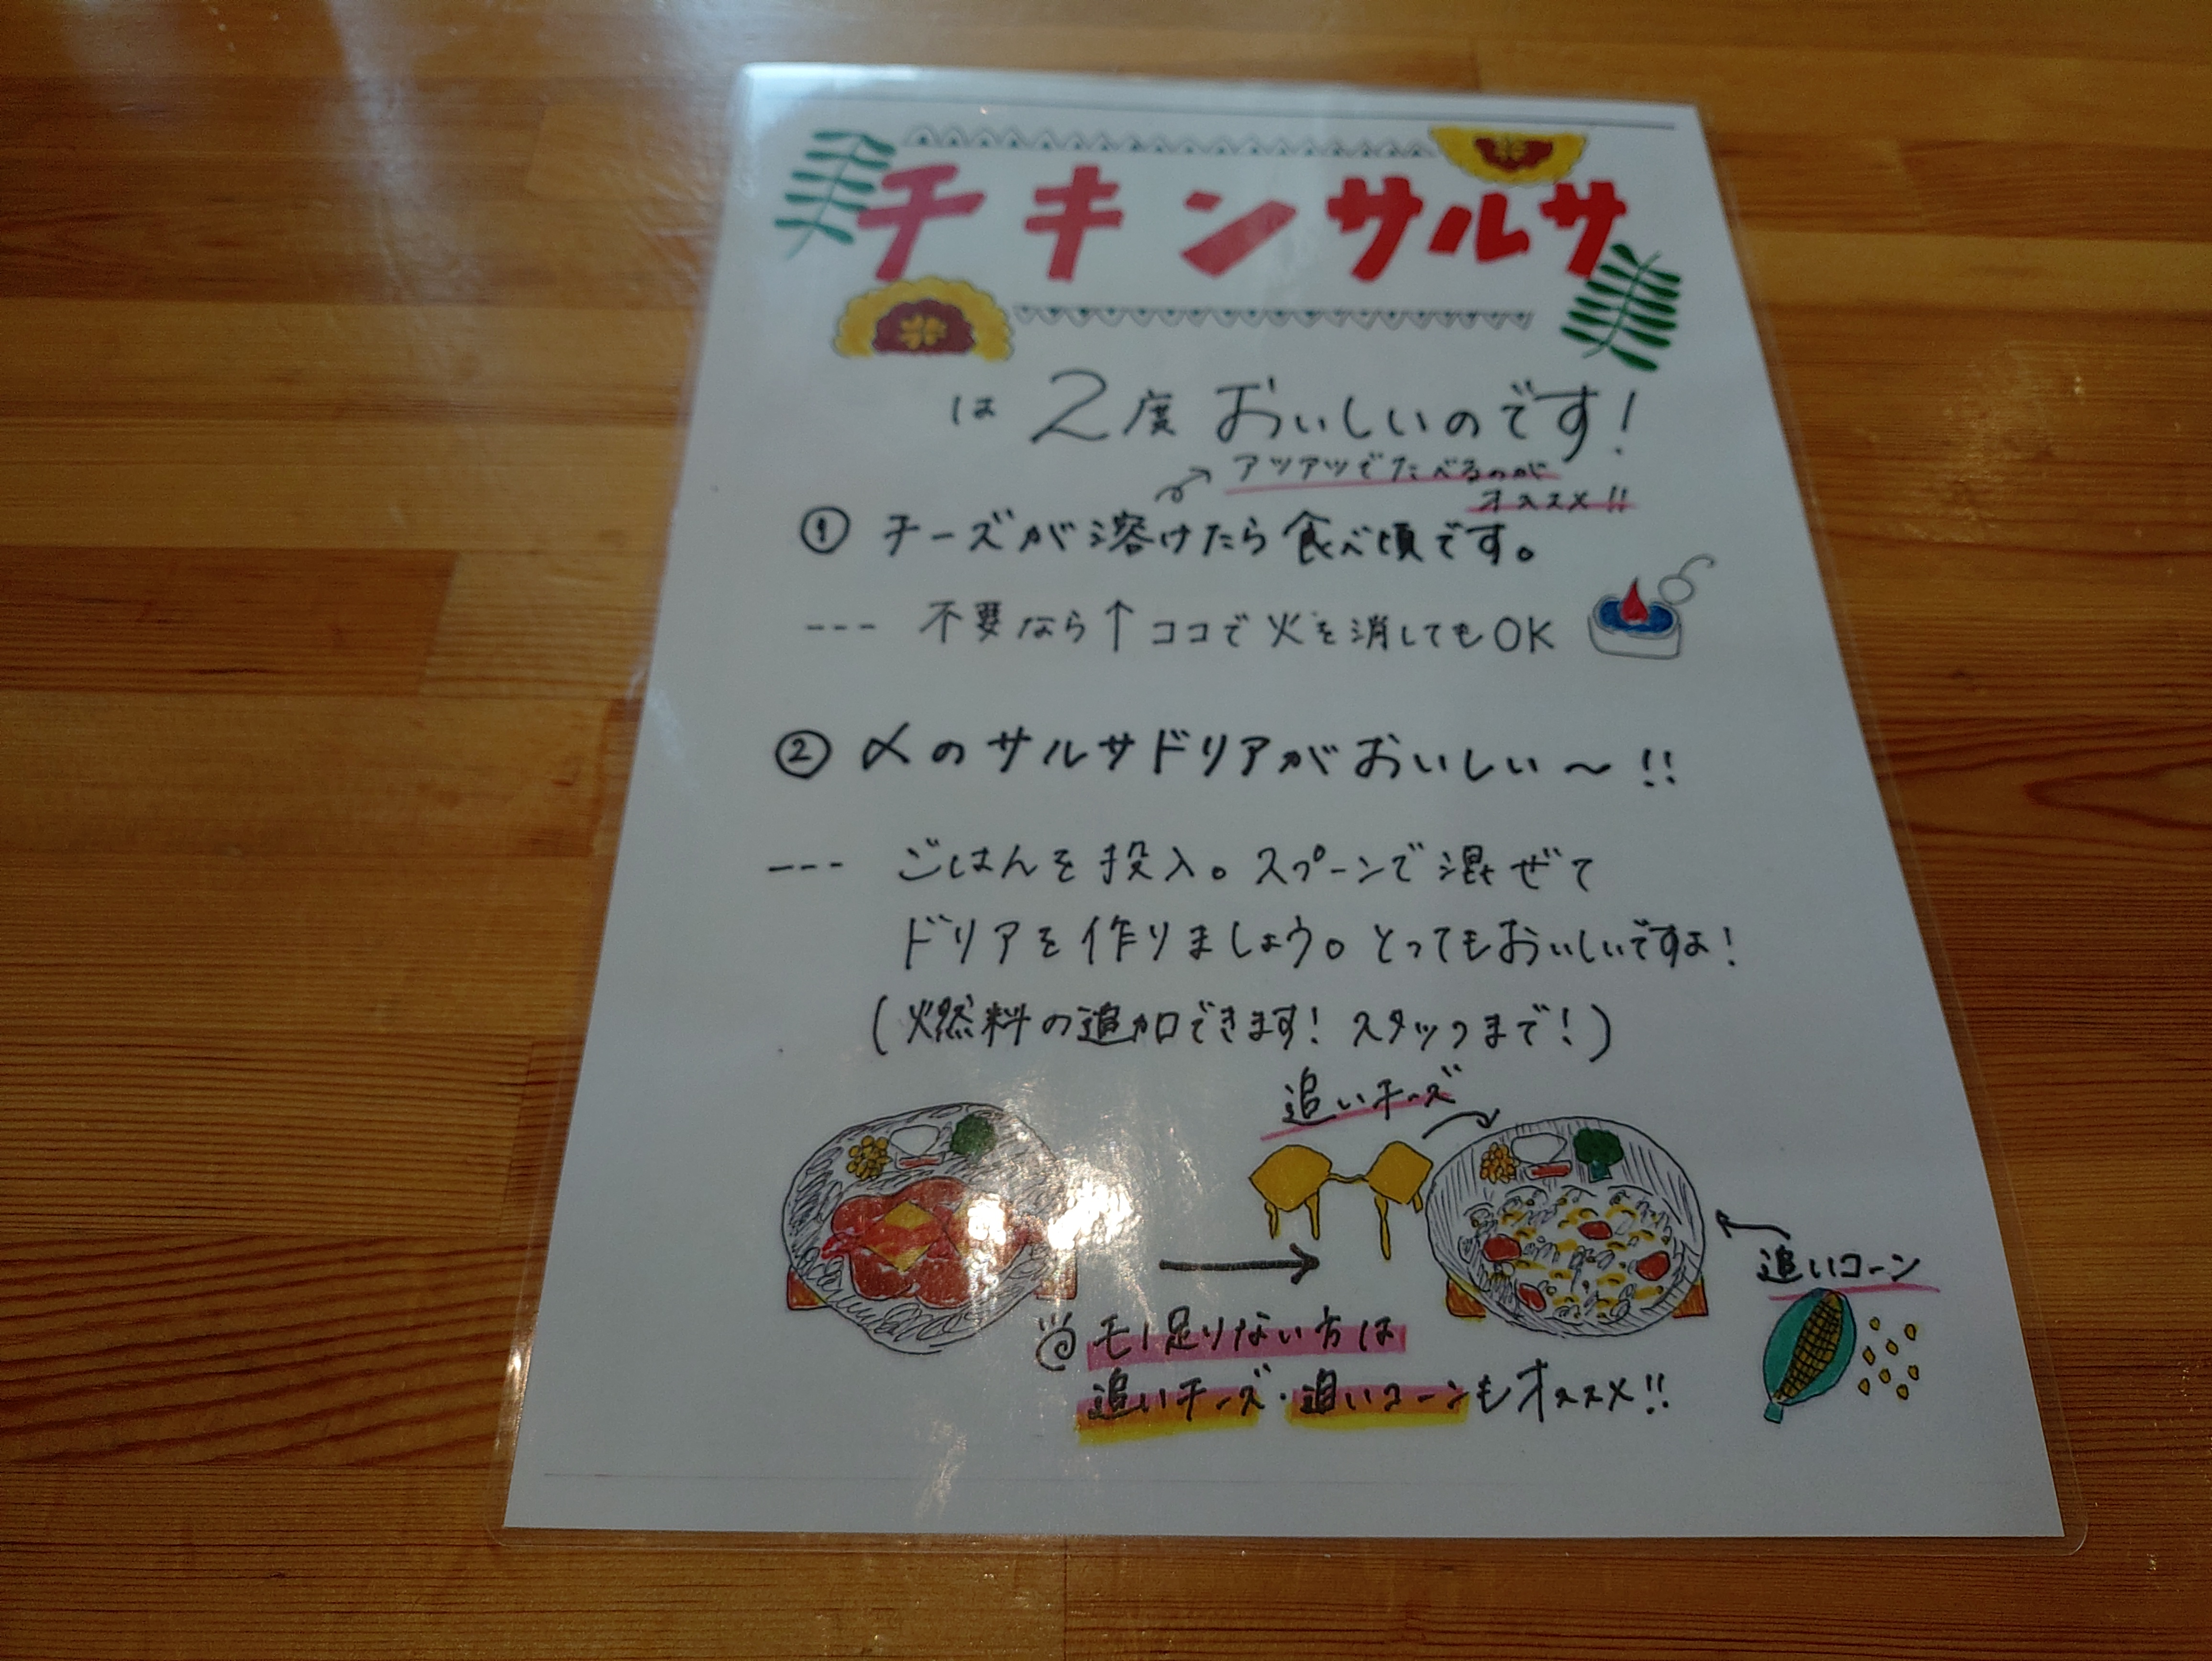 チキンサルサ
は 2度 おいしいのです!
アツアツでたべるのが
オススメ!!
① チーズが溶けたら食べ頃です。
--- 不要なら↑ココで火を消してもOK
② 〆のサルサドリアがおいしい〜!!
--- ごはんを投入。スプーンで混ぜて
ドリアを作りましょう。とってもおいしいですよ!
(燃料の追加できます! スタッフまで!)
追いチーズ
追いコーン
モノ足りない方は
追いチーズ・追いコーンもオススメ!!